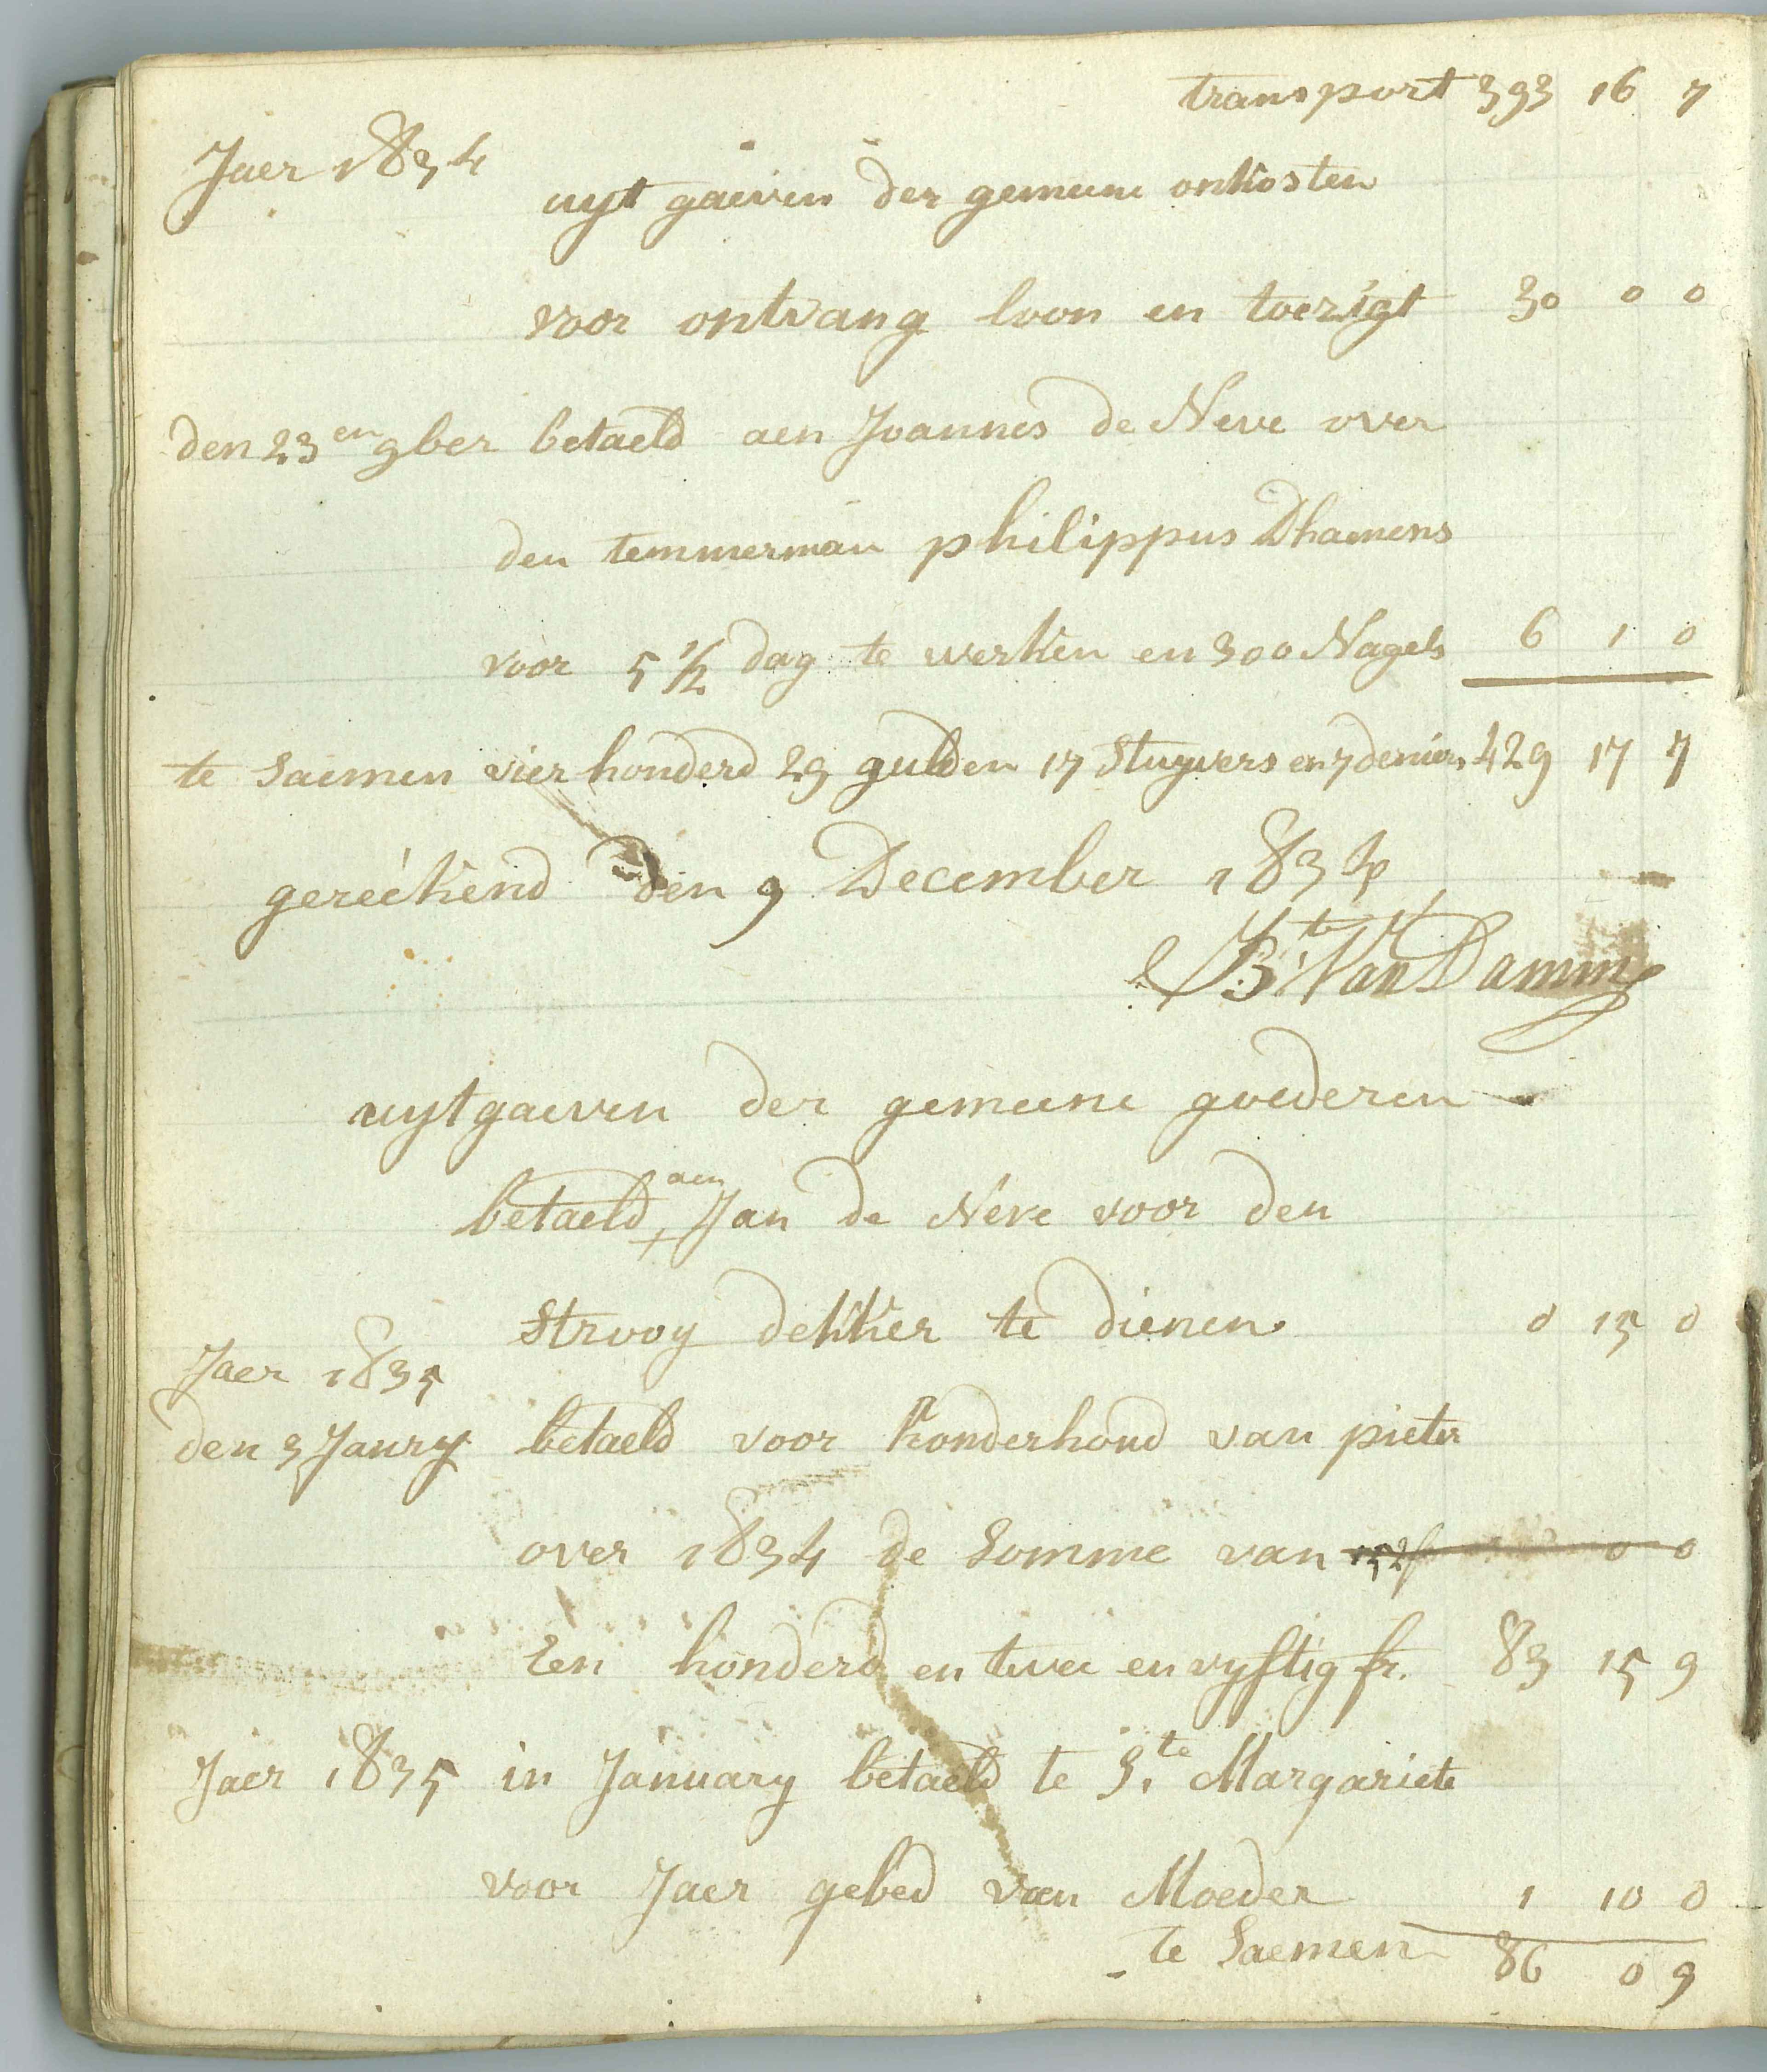 transport 393 16 7
Jaer 1834
uyt gaeven der gemeene onkosten
voor ontvang loon en toezigt 30 0 0
den 23en 9ber betaeld aen Joannes de Neve over
den temmerman philippus Dhamens
voor 5 1/2 dag te werken en 300 Nagels 6 1 0
te saemen vier honderd 29 gulden 17 Stuyvers en 7 deniers 429 17 7
gereékend den 9 December 1834
JBte Van Damme
uytgaeven der gemeene goederen
betaeld aen Jan de Neve voor den
Strooy dekker te dienen 0 15 0
Jaer 1835
den 3 Janry betaeld voor honderhoud van pieter
over 1834 de somme van 152f 0 0
Een honderd en twee en vyftig fr. 83 15 9
Jaer 1835 in January betaeld te S.te Margariete
voor Jaer gebed van Moeder 1 10 0
te saemen 86 0 9